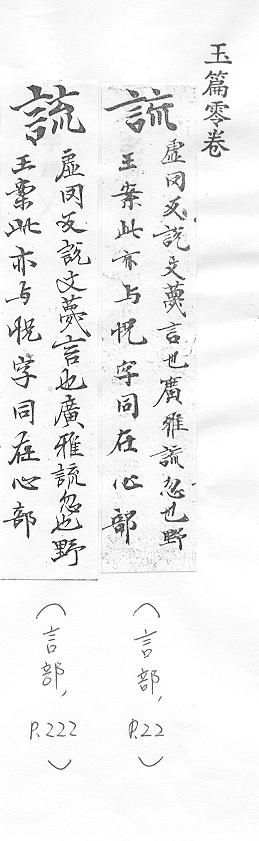 玉篇零卷
𧧢
虛罔反說文夢言也廣雅𧧢忽也野
王案此亦与怳字同在心部
(言部, P.22)
𧧢
虛罔反說文夢言也廣雅𧧢忽也野
王案此亦与怳字同在心部
(言部, P.222)